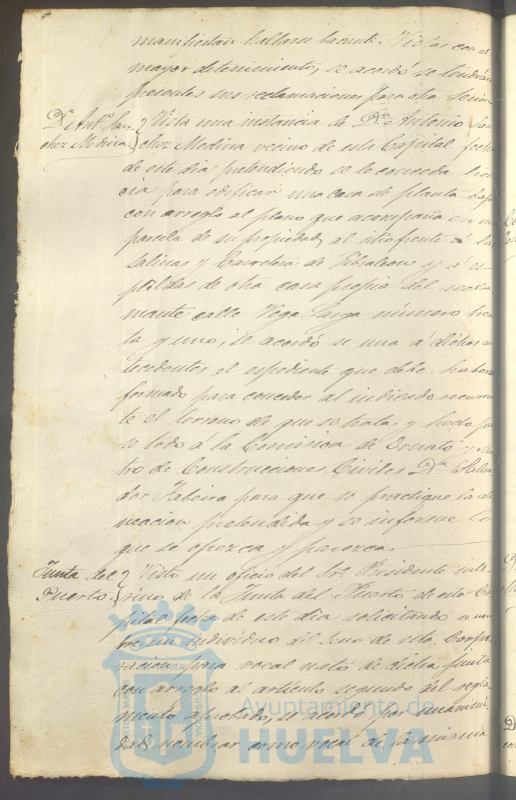 manifiestan hallarse vacante. Vistas con el
mayor detenimiento, se acordó se tendrán
presentes sus reclamaciones para otra sesión
Dn. Antº. San-
chez Medina
Vista una instancia de Dn. Antonio San
chez Medina vecino de esta Capital fecha
de este dia pretendiendo se le conceda licen
cia para edificar una casa de planta baja
con arreglo al plano que acompaña en una
parcela de su propiedad, al sitio frente á las
Salinas y Carretera de Gibraleon y á es-
paldas de otra casa propia del
calle Vega Larga número trein
ta y uno, se acordó se una á dichos an
tecedentes el espediente que debe haberse
formado para conceder al indicado recurren
te el terreno de que se trata y hecho pa
se todo á la Comision de Ornato y Maes
tro de Construcciones Civiles Dn. Salva
dor para que se practique la ali
neacion pretendida y se informe lo
que se ofrezca y parezca.
Junta del
Puerto.
Visto un oficio del Sr. Presidente inte
rino de la Junta del Puerto de esta Ca
pital fecha de este dia solicitando se nom
bre un individuo del seno de esta Corpo
racion para vocal nato de dicha Junta
con arreglo al artículo segundo del regla
mento aprobado, se acordó por unanimi
dad, nombrar como vocal de la misma
Ayuntamiento de
HUELVA